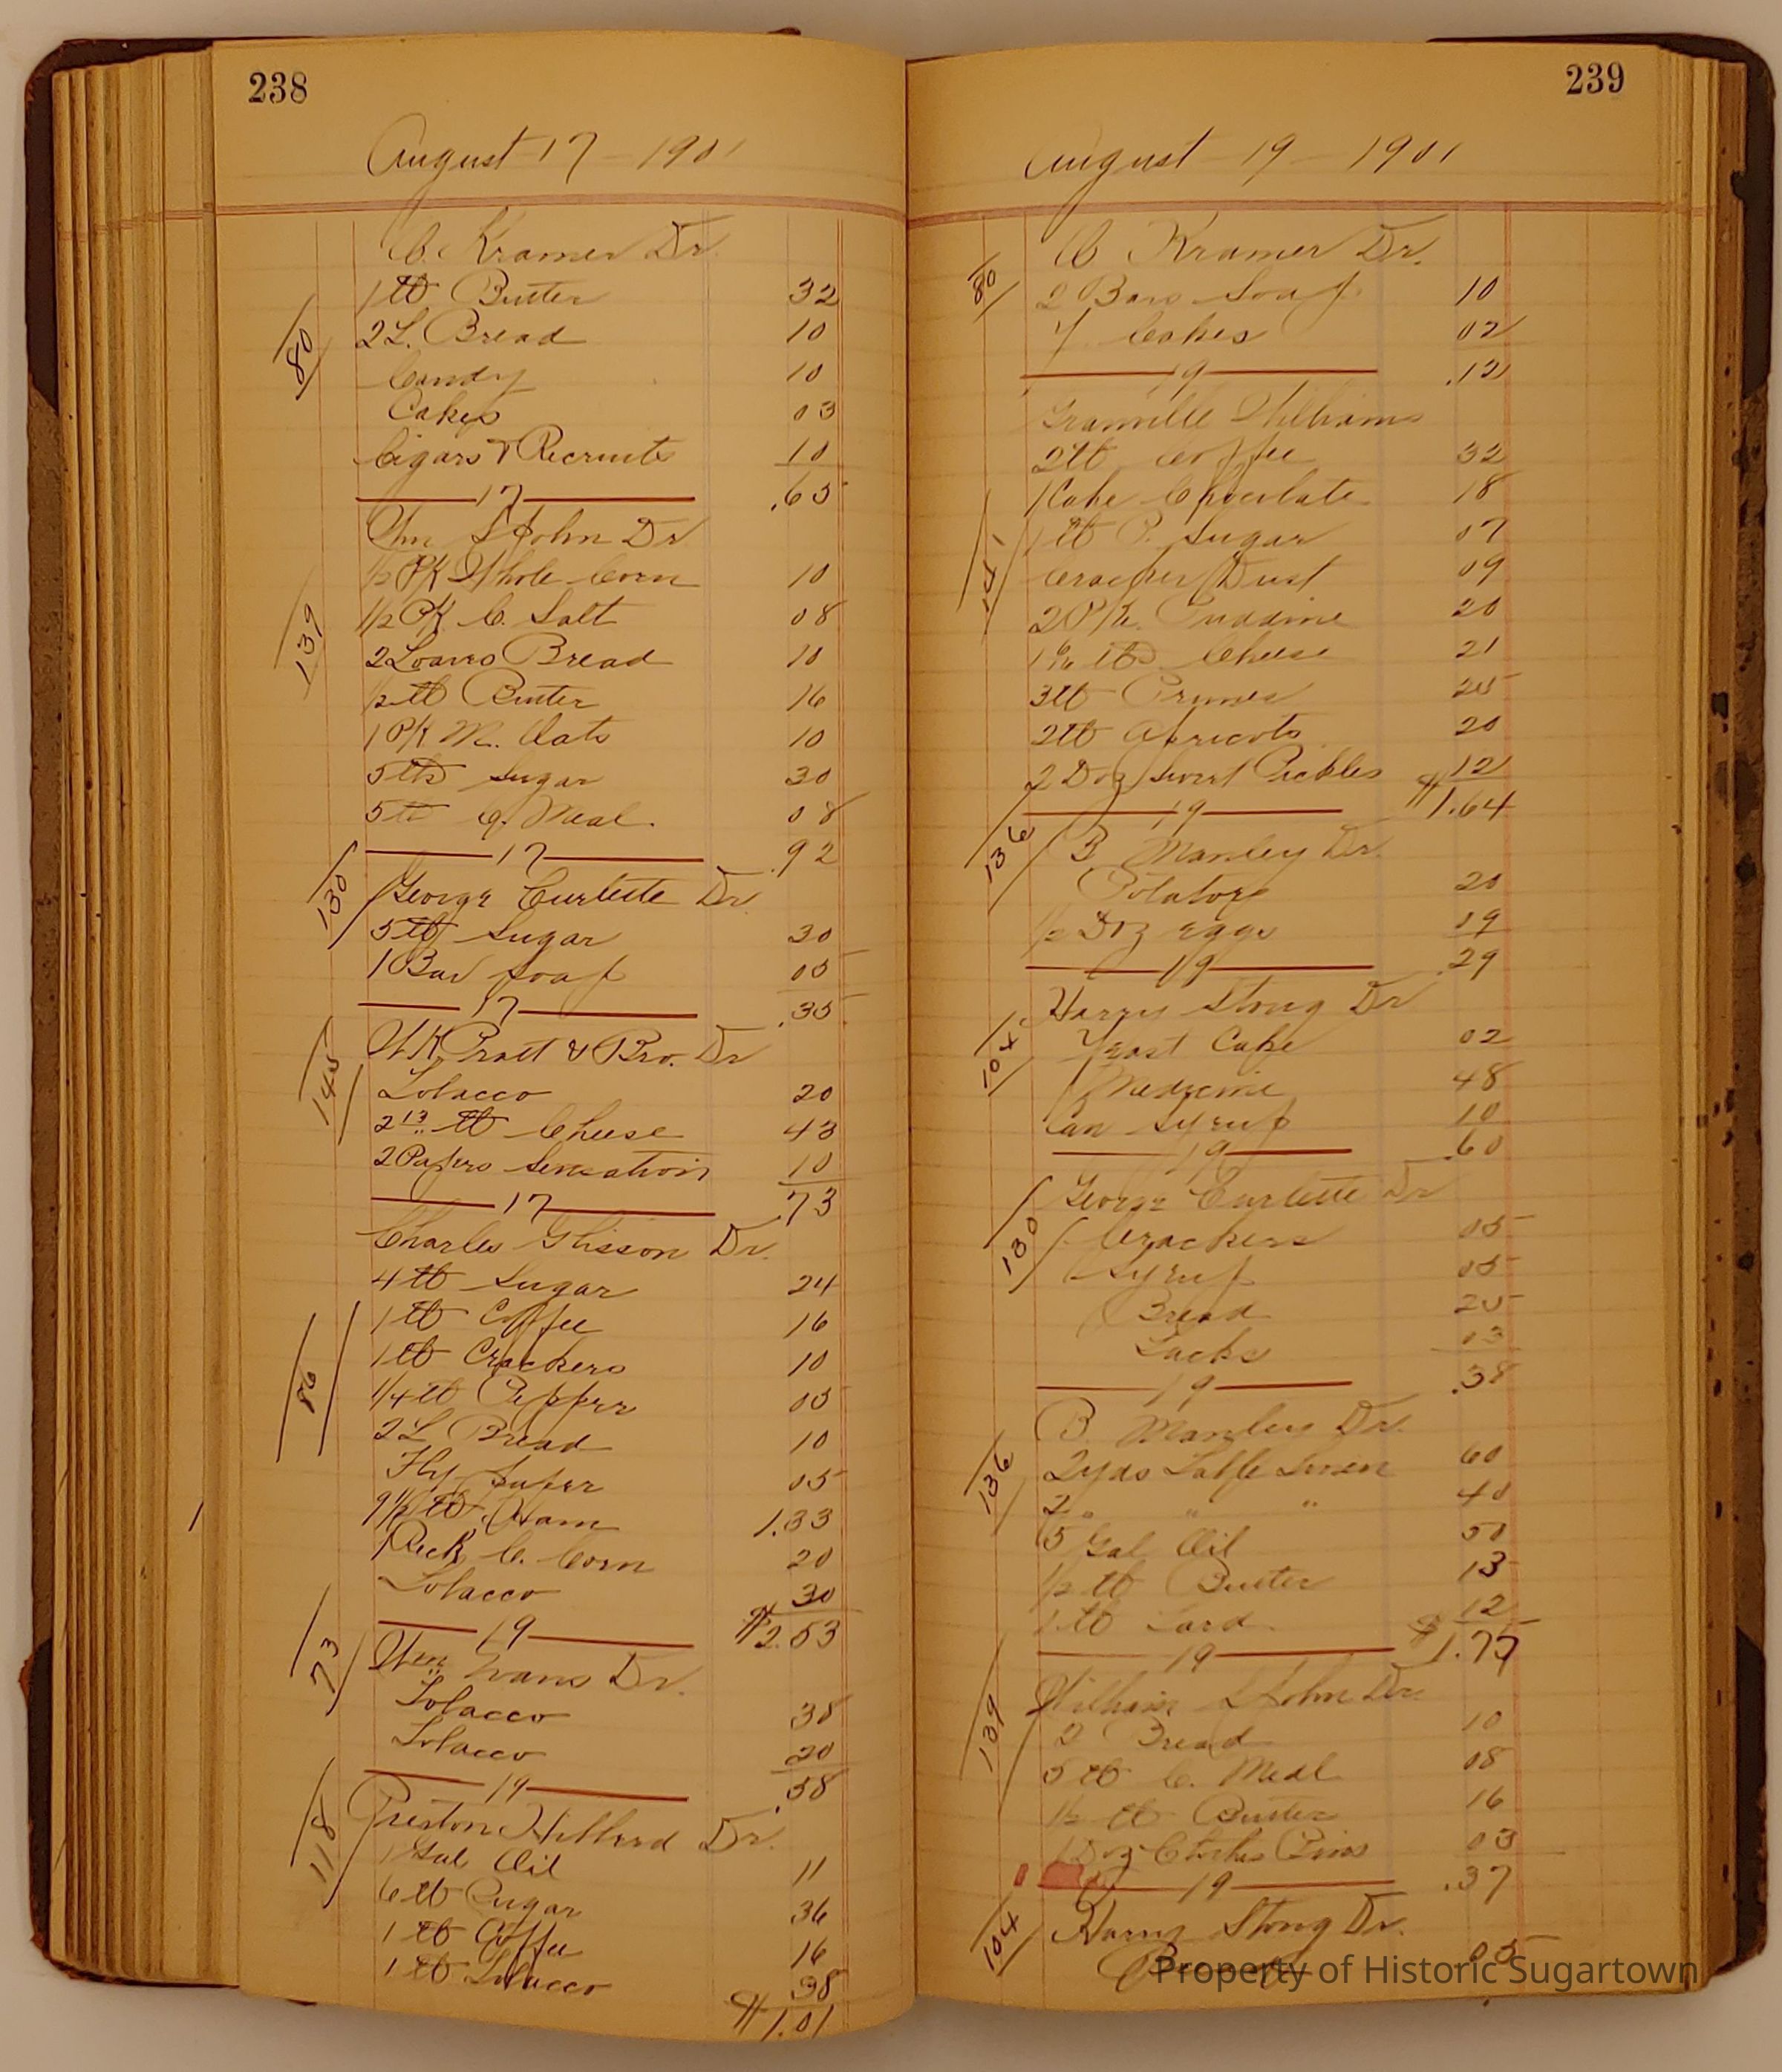 238
August 17 - 1901
C. Kramer Dr.
80
1 lb Butter 32
2 L. Bread 10
Candy 10
Cakes 03
Cigars & Recruits 10
17 .65
Wm St John Dr
139
1/2 PK Whole Corn 10
1/2 PK C. Salt 08
2 Loaves Bread 10
1/2 lb Butter 16
1 PK M. Oats 10
5 lbs Sugar 30
5 lb C. Meal. 08
17 .92
130
George Curlette Dr
5 lb Sugar 30
1 Bar Soap 05
17 .35
145
W.K. Pratt & Bro. Dr
Tobacco 20
2 13 lb Cheese 43
2 Papers Sensation 10
17 .73
Charles Glisson Dr.
86
4 lb Sugar 24
1 lb Coffee 16
1 lb Crackers 10
1/4 lb Pepper 05
2 L Bread 10
Fly paper 05
9 1/2 lb. Ham 1.33
1 Peck C. Corn 20
Tobacco 30
19 $2.53
73
Wm Evans Dr.
Tobacco 38
Tobacco 20
19 .58
118
Preston Hibberd Dr.
1 Gal Oil 11
6 lb Sugar 36
1 lb Coffee 16
1 lb Tobacco 38
$1.01
239
August 19 - 1901
80
C Kramer Dr.
2 Bars Soap 10
Cakes 02
19 .12
Granville Williams
141
2 lb Coffee 32
1 Cake Chocolate 18
1 lb P. Sugar 07
Cracker Dust 09
2 PK. 20
lbs. Cheese 21
3 lb Prunes 25
2 lb Apricots 20
2 Doz Sweet Pickles 12
19 $1.64
136
B Manley Dr.
Potatoes 20
1/2 Doz eggs 09
19 .29
Harry Stong Dr
104
Yeast Cake 02
Medicine 48
Can Syrup 10
19 .60
George Curlette Dr
130
Crackers 05
Syrup 05
Bread 25
Tacks 03
19 .38
B. Manley Dr.
136
2 yds Table Linen 60
2 " " " 40
5 Gal Oil 50
1/2 lb Butter 13
1 lb Lard 12
19 $1.75
139
William St John Dr.
2 Bread 10
5 lb C. Meal 08
1/2 lb Butter 16
1 Doz Clothes Pins 03
19 .37
104
Harry Stong Dr.
05
Property of Historic Sugartown